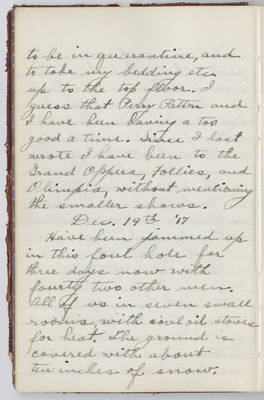 to be in quarantine, and
to take my bedding etc.
up to the top floor. I
guess that Perry Pattn and
I have been having a too
good a time. Since I last
wrote I have been to the
Grand Oppera, Follies, and
Olimpia, without mentioning
the smaller shows.
Dec. 19th '17
Have been jammed up
in this foul hole for
three days now with
fourty two other men.
All of us in seven small
rooms, with coal oil stoves
for heat. The ground is
covered with about
ten inches of snow.